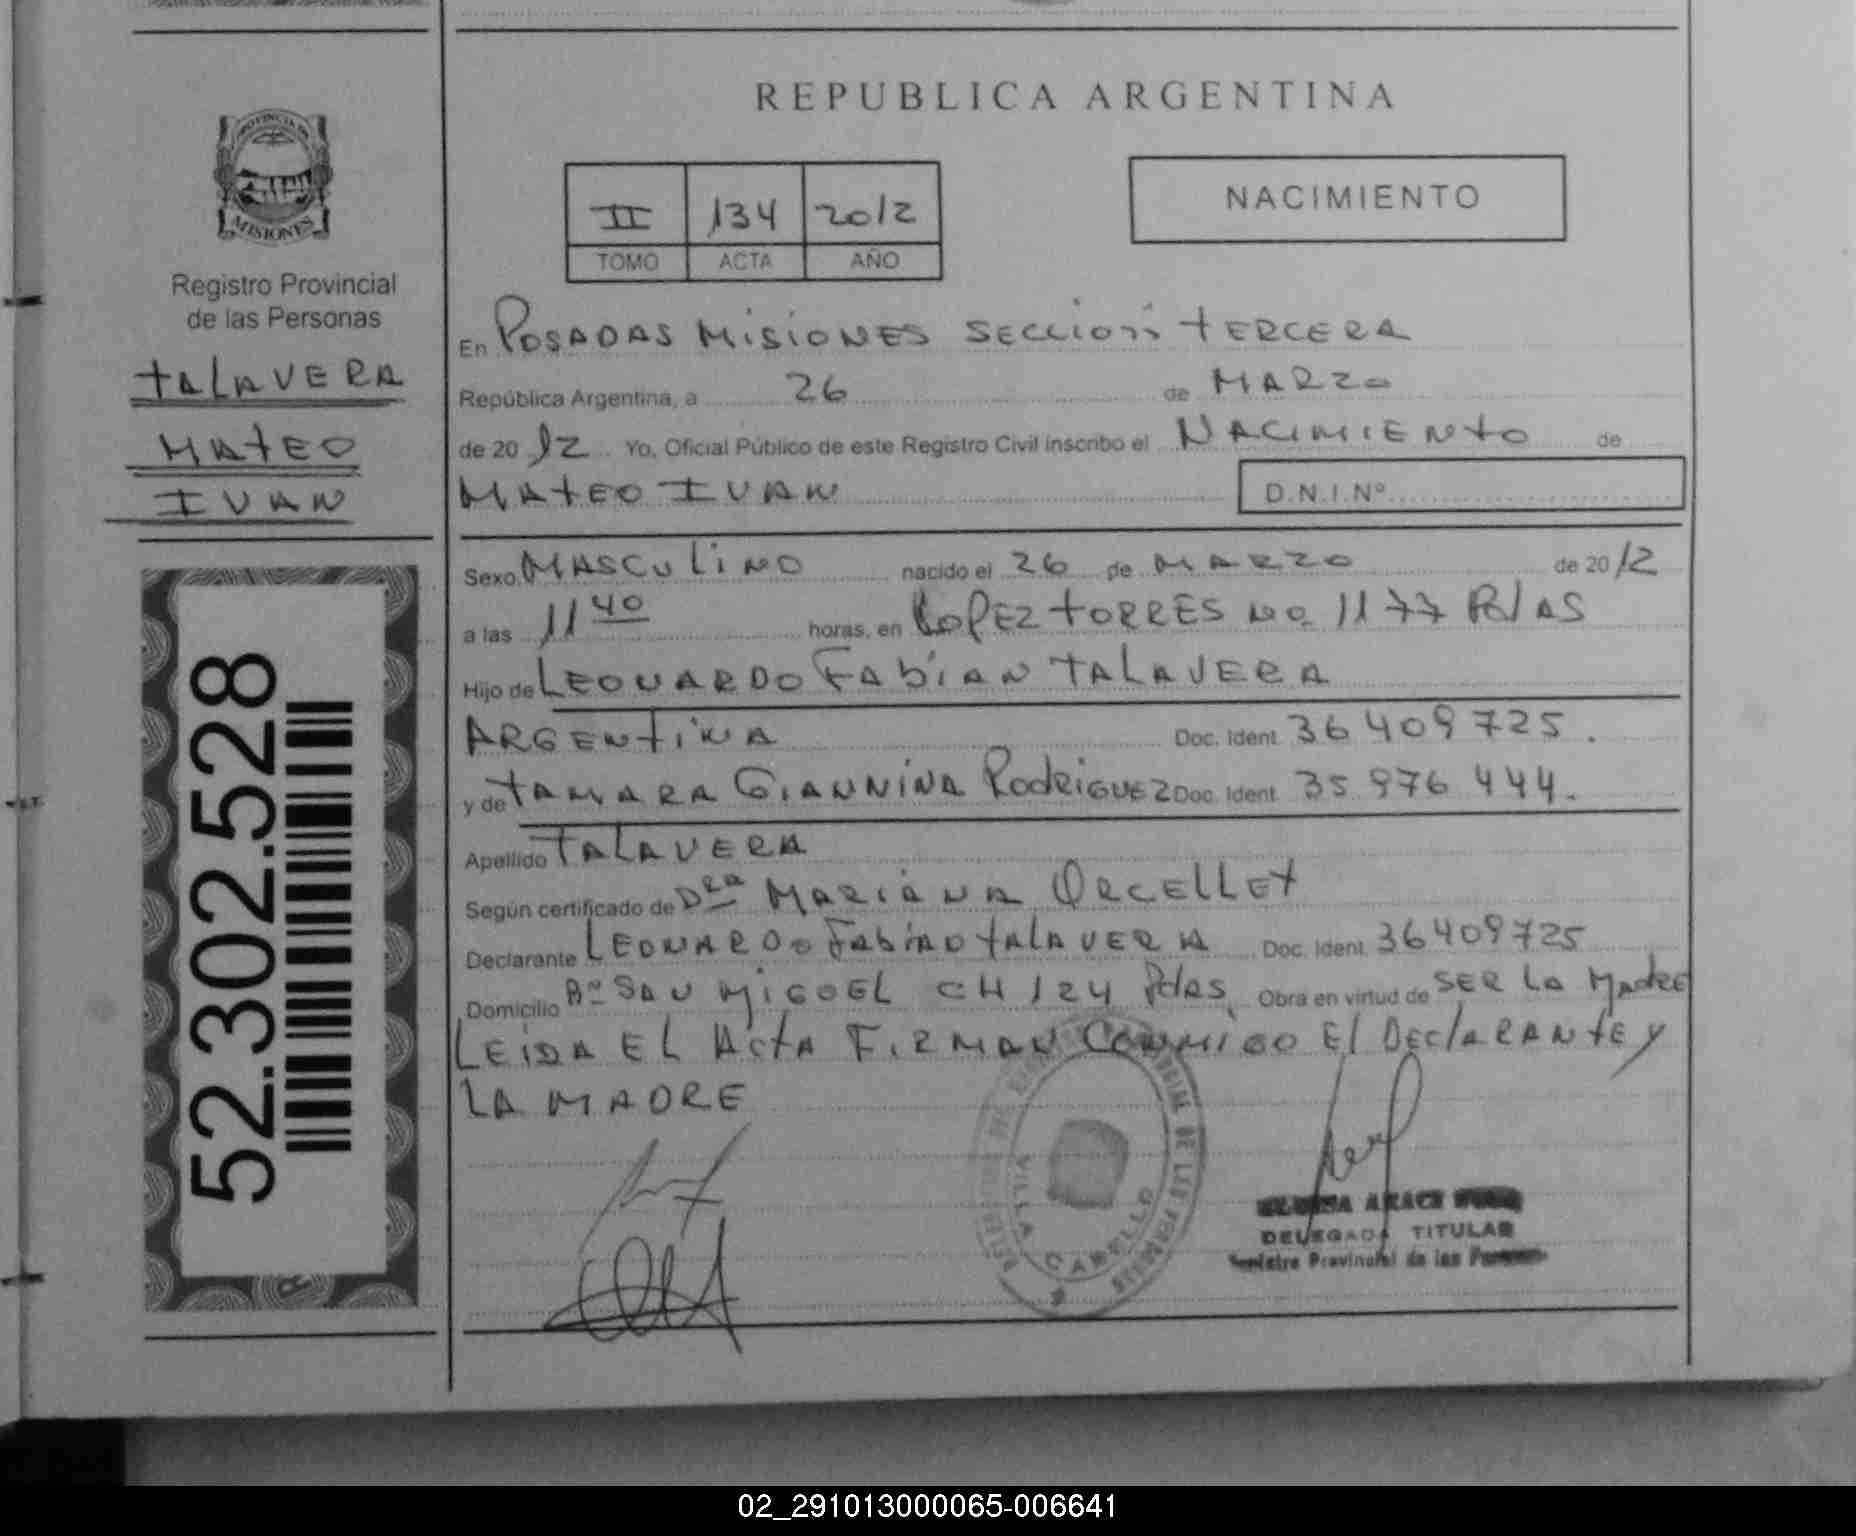 PROVINCIA DE
MISIONES
Registro Provincial
de las Personas
TALAVERA
MATEO
IVAN
52.302.528
REPUBLICA ARGENTINA
II 134 2012
TOMO ACTA AÑO
NACIMIENTO
En POSADAS MISIONES SECCION TERCERA
República Argentina, a 26 de MARZO
de 20 12 Yo, Oficial Público de este Registro Civil inscribo el NACIMIENTO de
MATEO IVAN D.N.I.Nº
Sexo MASCULINO nacido el 26 de MARZO de 20 12
a las 11 40 horas, en LOPEZ TORRES No. 1177 Pdas
Hijo de LEONARDO FABIAN TALAVERA
ARGENTINA Doc. Ident. 36 409 725.
y de TAMARA GIANNINA RODRIGUEZ Doc. Ident. 35 976 444.
Apellido TALAVERA
Según certificado de Dra MARIANA ORCELLET
Declarante LEONARDO FABIAN TALAVERA Doc. Ident. 36409725
Domicilio Bº SAN MIGUEL CH 124 Pdas Obra en virtud de SER LA MADRE
LEIDA EL ACTA FIRMAN CONMIGO EL DECLARANTE Y
LA MADRE
VILLA CABELLO
DELEGADA TITULAR
Registro Provincial de las Personas
02_291013000065-006641